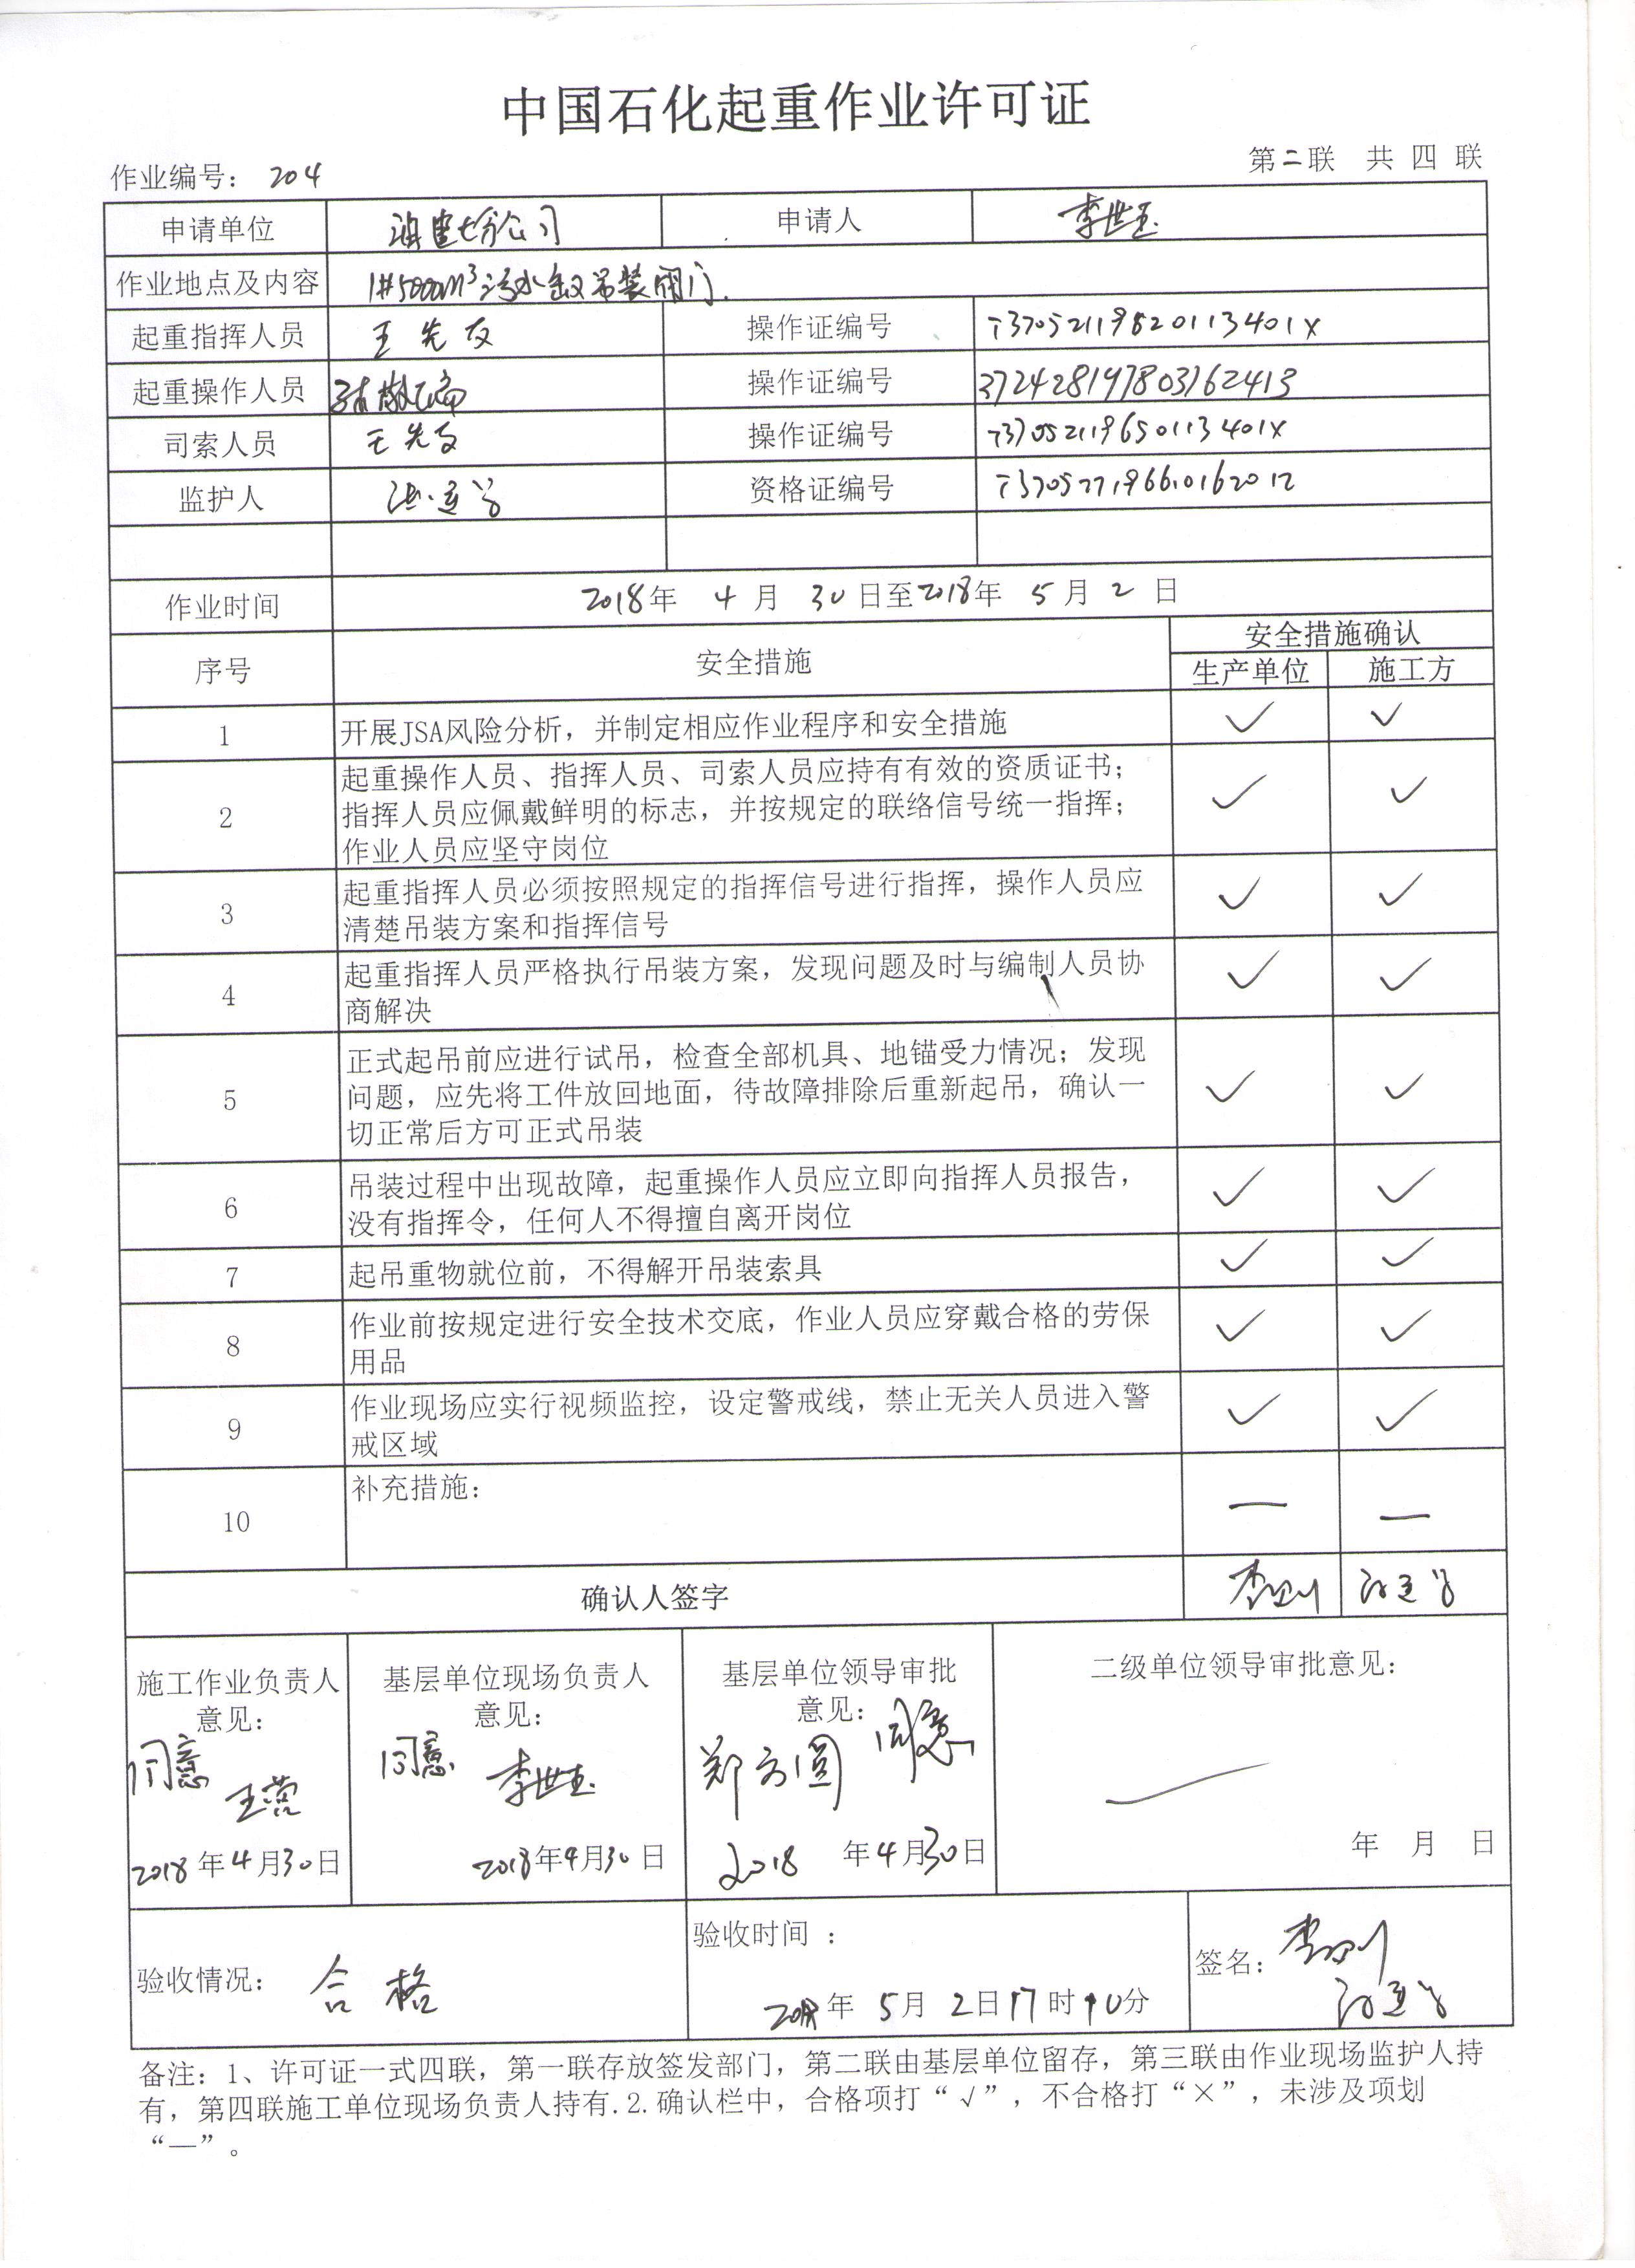 中国石化起重作业许可证
作业编号： 204
第二联 共 四 联
申请单位 油建七分公司 申请人 李世玉
作业地点及内容 1#5000m³污水缸吊装阀门.
起重指挥人员 王先友 操作证编号
起重操作人员 操作证编号 372428197803162413
司索人员 王先友 操作证编号 T37052119650113401X
监护人 资格证编号
作业时间 2018年 4 月 30 日至2018年 5 月 2 日
序号 安全措施 安全措施确认
生产单位 施工方
1 开展JSA风险分析，并制定相应作业程序和安全措施 ✓ ✓
2 起重操作人员、指挥人员、司索人员应持有有效的资质证书；
指挥人员应佩戴鲜明的标志，并按规定的联络信号统一指挥； ✓ ✓
作业人员应坚守岗位
3 起重指挥人员必须按照规定的指挥信号进行指挥，操作人员应 ✓ ✓
清楚吊装方案和指挥信号
4 起重指挥人员严格执行吊装方案，发现问题及时与编制人员协 ✓ ✓
商解决
5 正式起吊前应进行试吊，检查全部机具、地锚受力情况；发现
问题，应先将工件放回地面，待故障排除后重新起吊，确认一 ✓ ✓
切正常后方可正式吊装
6 吊装过程中出现故障，起重操作人员应立即向指挥人员报告， ✓ ✓
没有指挥令，任何人不得擅自离开岗位
7 起吊重物就位前，不得解开吊装索具 ✓ ✓
8 作业前按规定进行安全技术交底，作业人员应穿戴合格的劳保 ✓ ✓
用品
9 作业现场应实行视频监控，设定警戒线，禁止无关人员进入警 ✓ ✓
戒区域
10 补充措施： — —
确认人签字
施工作业负责人
意见：
同意
王营
2018年4月30日
基层单位现场负责人
意见：
同意
李世玉
2018年4月30日
基层单位领导审批
意见：
同意
郑方圆
2018 年4月30日
二级单位领导审批意见：
—
年 月 日
验收情况： 合格
验收时间 ：
2018年 5月 2日17时10分
签名：
备注：1、许可证一式四联，第一联存放签发部门，第二联由基层单位留存，第三联由作业现场监护人持
有，第四联施工单位现场负责人持有.2.确认栏中，合格项打“√”，不合格打“×”，未涉及项划
“—”。